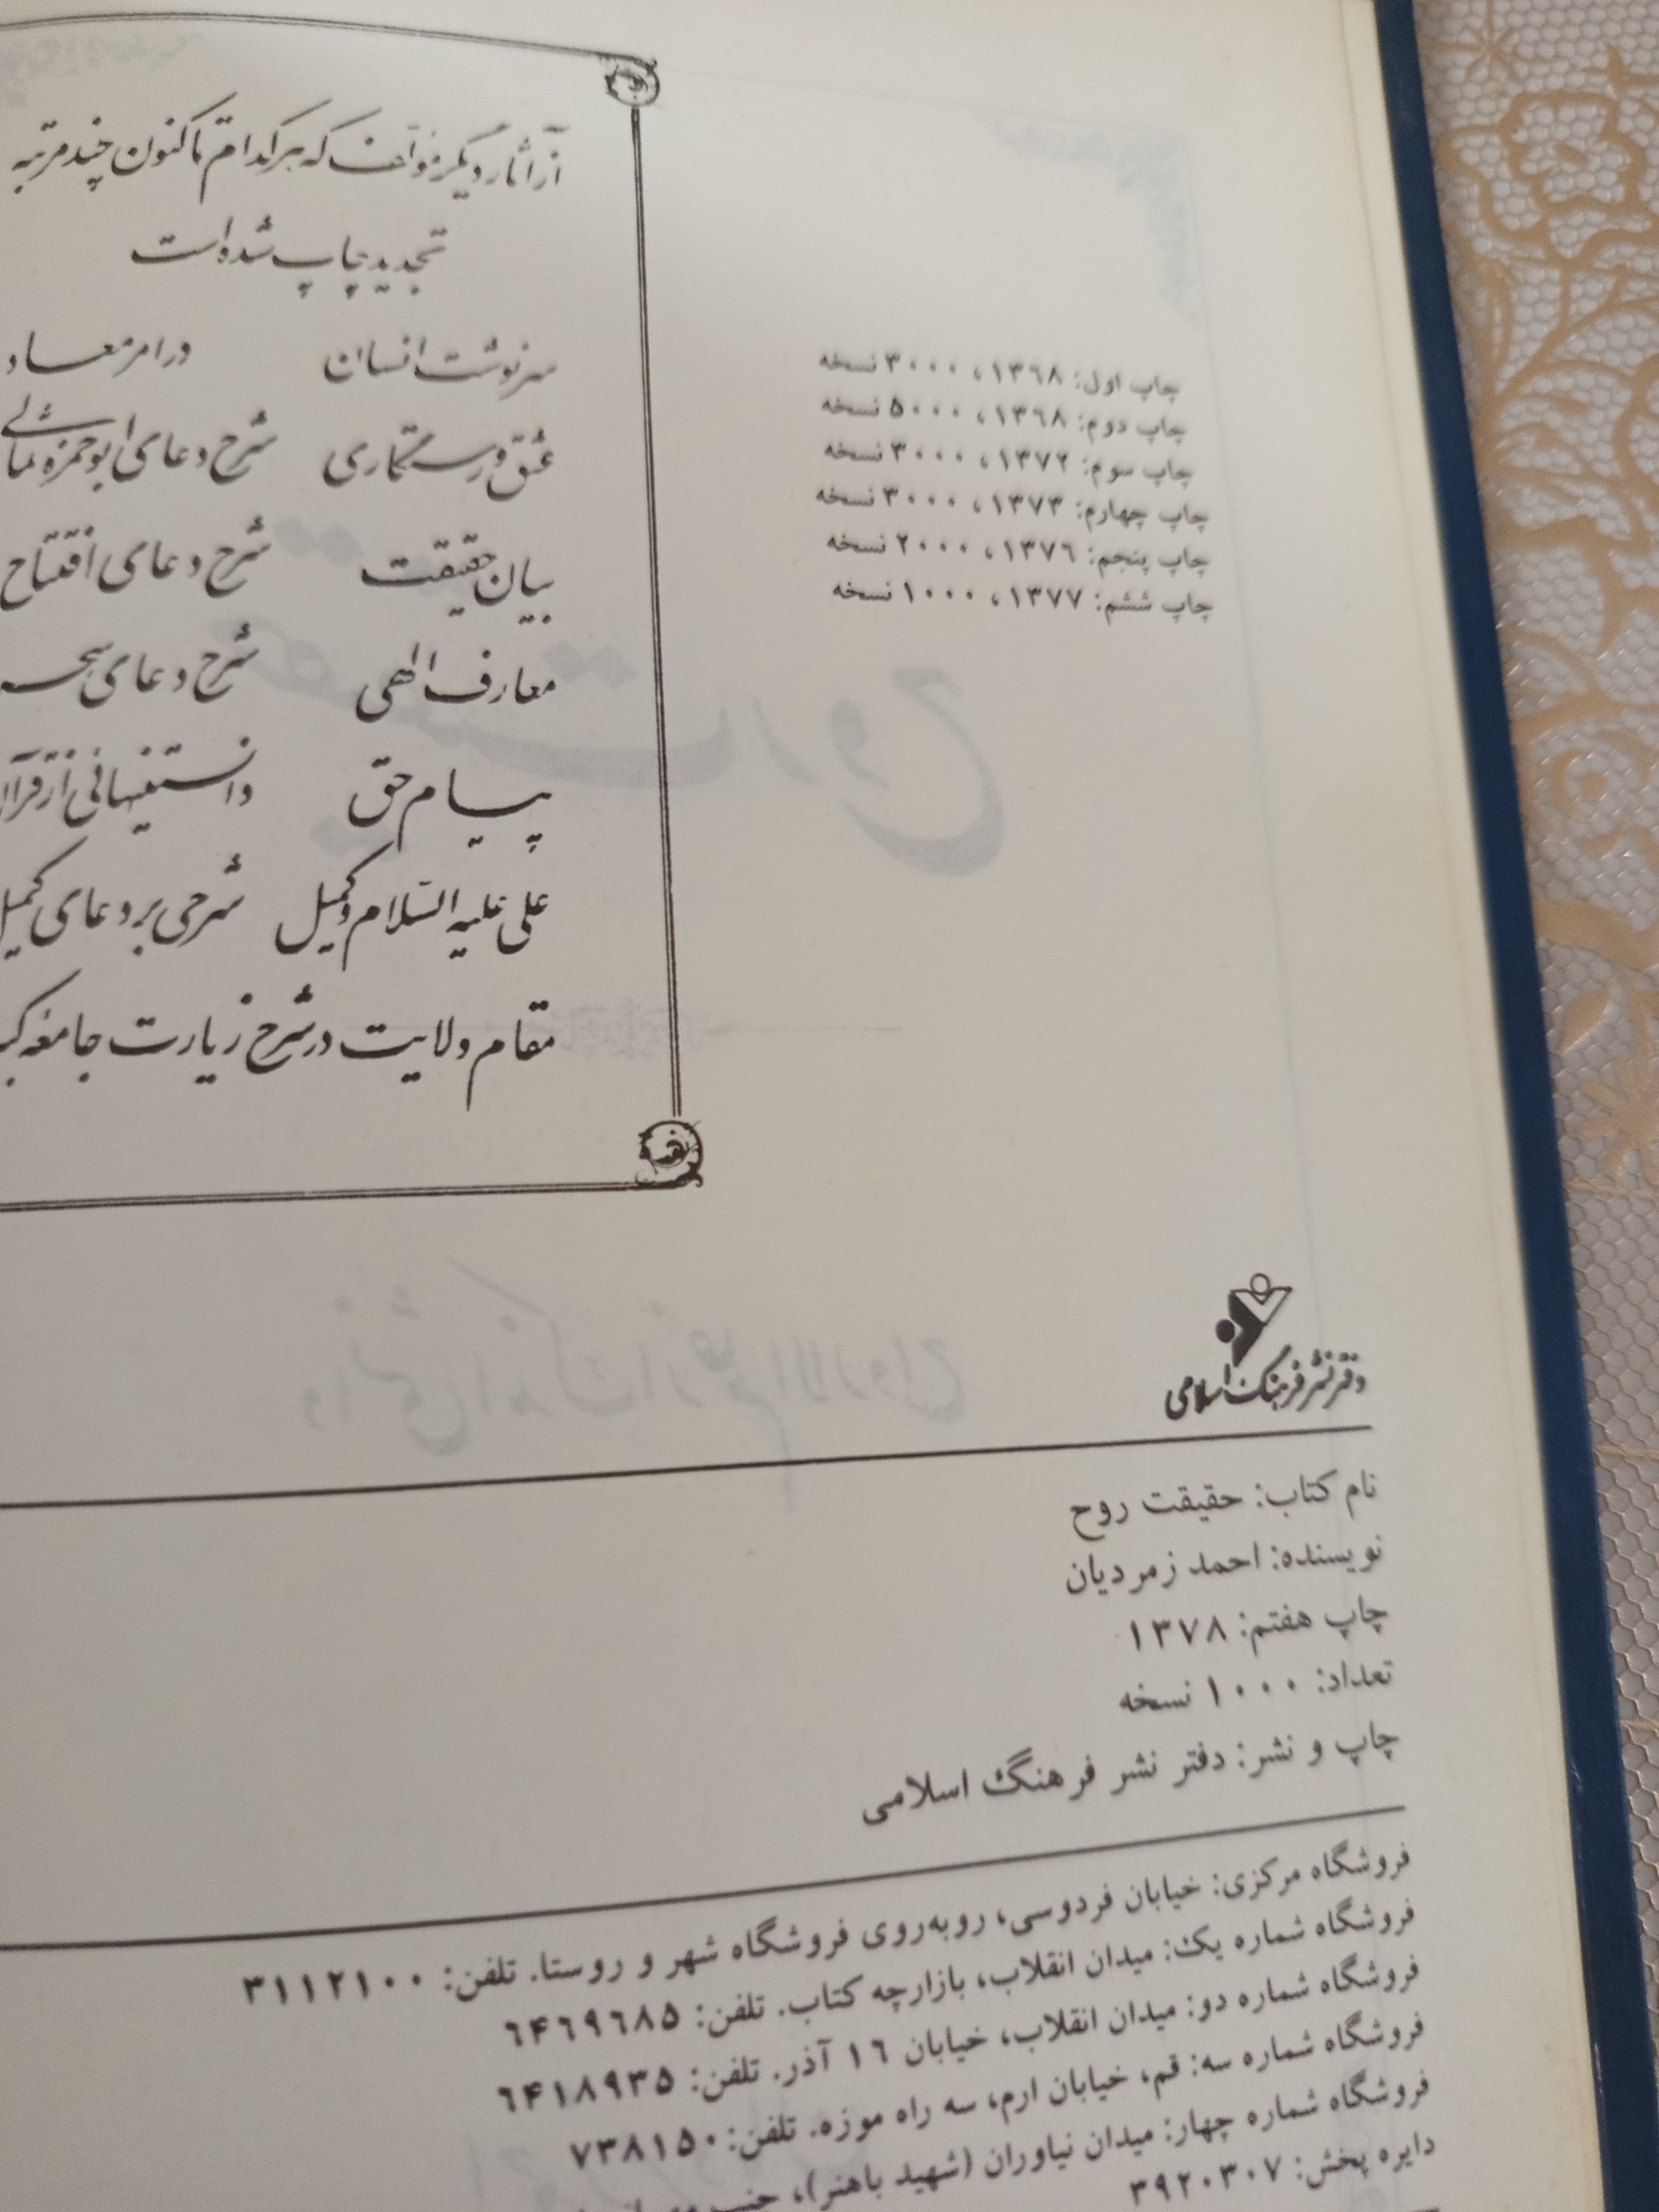 از آثار دیگر مؤلف که هر کدام تا کنون چند مرتبه
تجدید چاپ شده است
سرنوشت انسان در امر معاد
عشق و رستگاری شرح دعای ابوحمزه ثمالی
بیان حقیقت شرح دعای افتتاح
معارف الهی شرح دعای سحر
پیام حق دانستنیهائی از قرآن
علی علیه السلام و کمیل شرحی بر دعای کمیل
مقام ولایت در شرح زیارت جامعه
چاپ اول: ۱۳٦۸، ۳۰۰۰ نسخه
چاپ دوم: ۱۳٦۸، ۵۰۰۰ نسخه
چاپ سوم: ۱۳۷۲، ۳۰۰۰ نسخه
چاپ چهارم: ۱۳۷۳، ۳۰۰۰ نسخه
چاپ پنجم: ۱۳۷٦، ۲۰۰۰ نسخه
چاپ ششم: ۱۳۷۷، ۱۰۰۰ نسخه
دفتر نشر فرهنگ اسلامی
نام کتاب: حقیقت روح
نویسنده: احمد زمردیان
چاپ هفتم: ۱۳۷۸
تعداد: ۱۰۰۰ نسخه
چاپ و نشر: دفتر نشر فرهنگ اسلامی
فروشگاه مرکزی: خیابان فردوسی، روبه‌روی فروشگاه شهر و روستا. تلفن: ۳۱۱۲۱۰۰
فروشگاه شماره یک: میدان انقلاب، بازارچه کتاب. تلفن: ٦۴٦۹٦۸۵
فروشگاه شماره دو: میدان انقلاب، خیابان ۱٦ آذر. تلفن: ٦۴۱۸۹۳۵
فروشگاه شماره سه: قم، خیابان ارم، سه راه موزه. تلفن: ۷۳۸۱۵۰
فروشگاه شماره چهار: میدان نیاوران (شهید باهنر)، جنب
دایره پخش: ۳۹۲۰۳۰۷